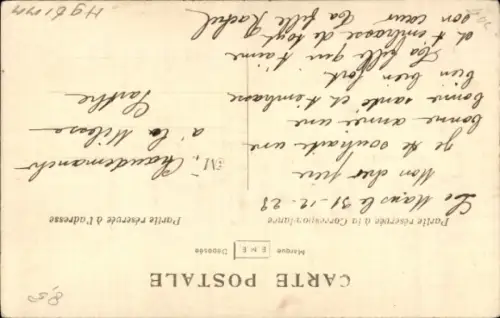 CARTE POSTALE
Marque E M E Déposée
Partie réservée à la Correspondance
Partie réservée à l'adresse
Le Mans le 31-12-23
Mon cher père
Je te souhaite une
bonne année une
bonne santé et t'embrasse
bien bien fort
Ta fille qui t'aime
et t'embrasse de tout
son cœur Ta fille Rachel
M. Chaudemanche
à la Milesse
Sarthe
8,50